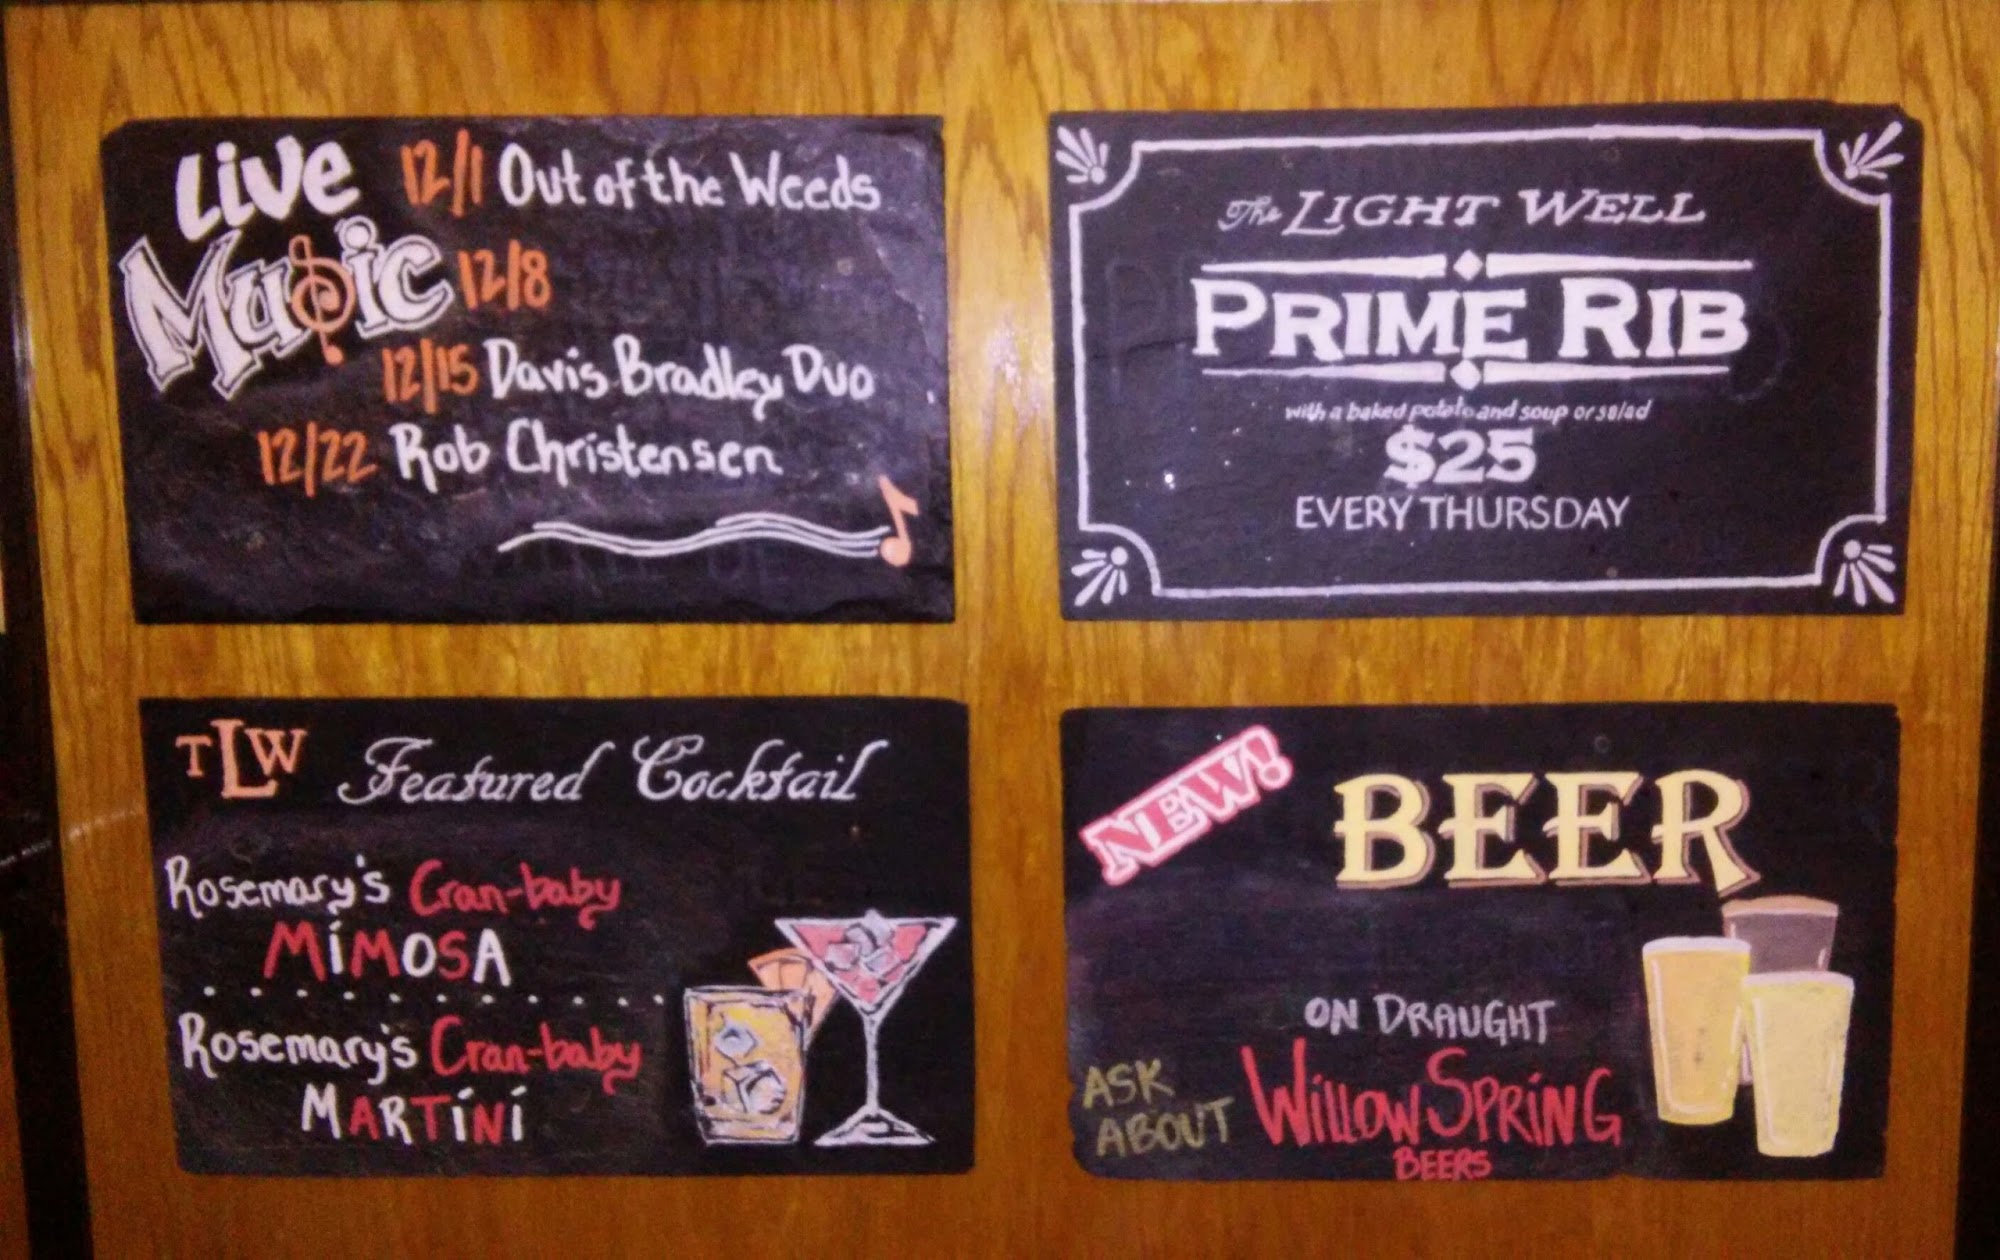 Live
Music
12/1 Out of the Weeds
12/8
12/15 Davis Bradley Duo
12/22 Rob Christensen
The LIGHT WELL
PRIME RIB
with a baked potato and soup or salad
$25
EVERY THURSDAY
TLW Featured Cocktail
Rosemary's Cran-baby
MiMOSA
Rosemary's Cran-baby
MARTiNi
NEW!
BEER
ON DRAUGHT
ASK
ABOUT
WillOW SPRiNG
BEERS